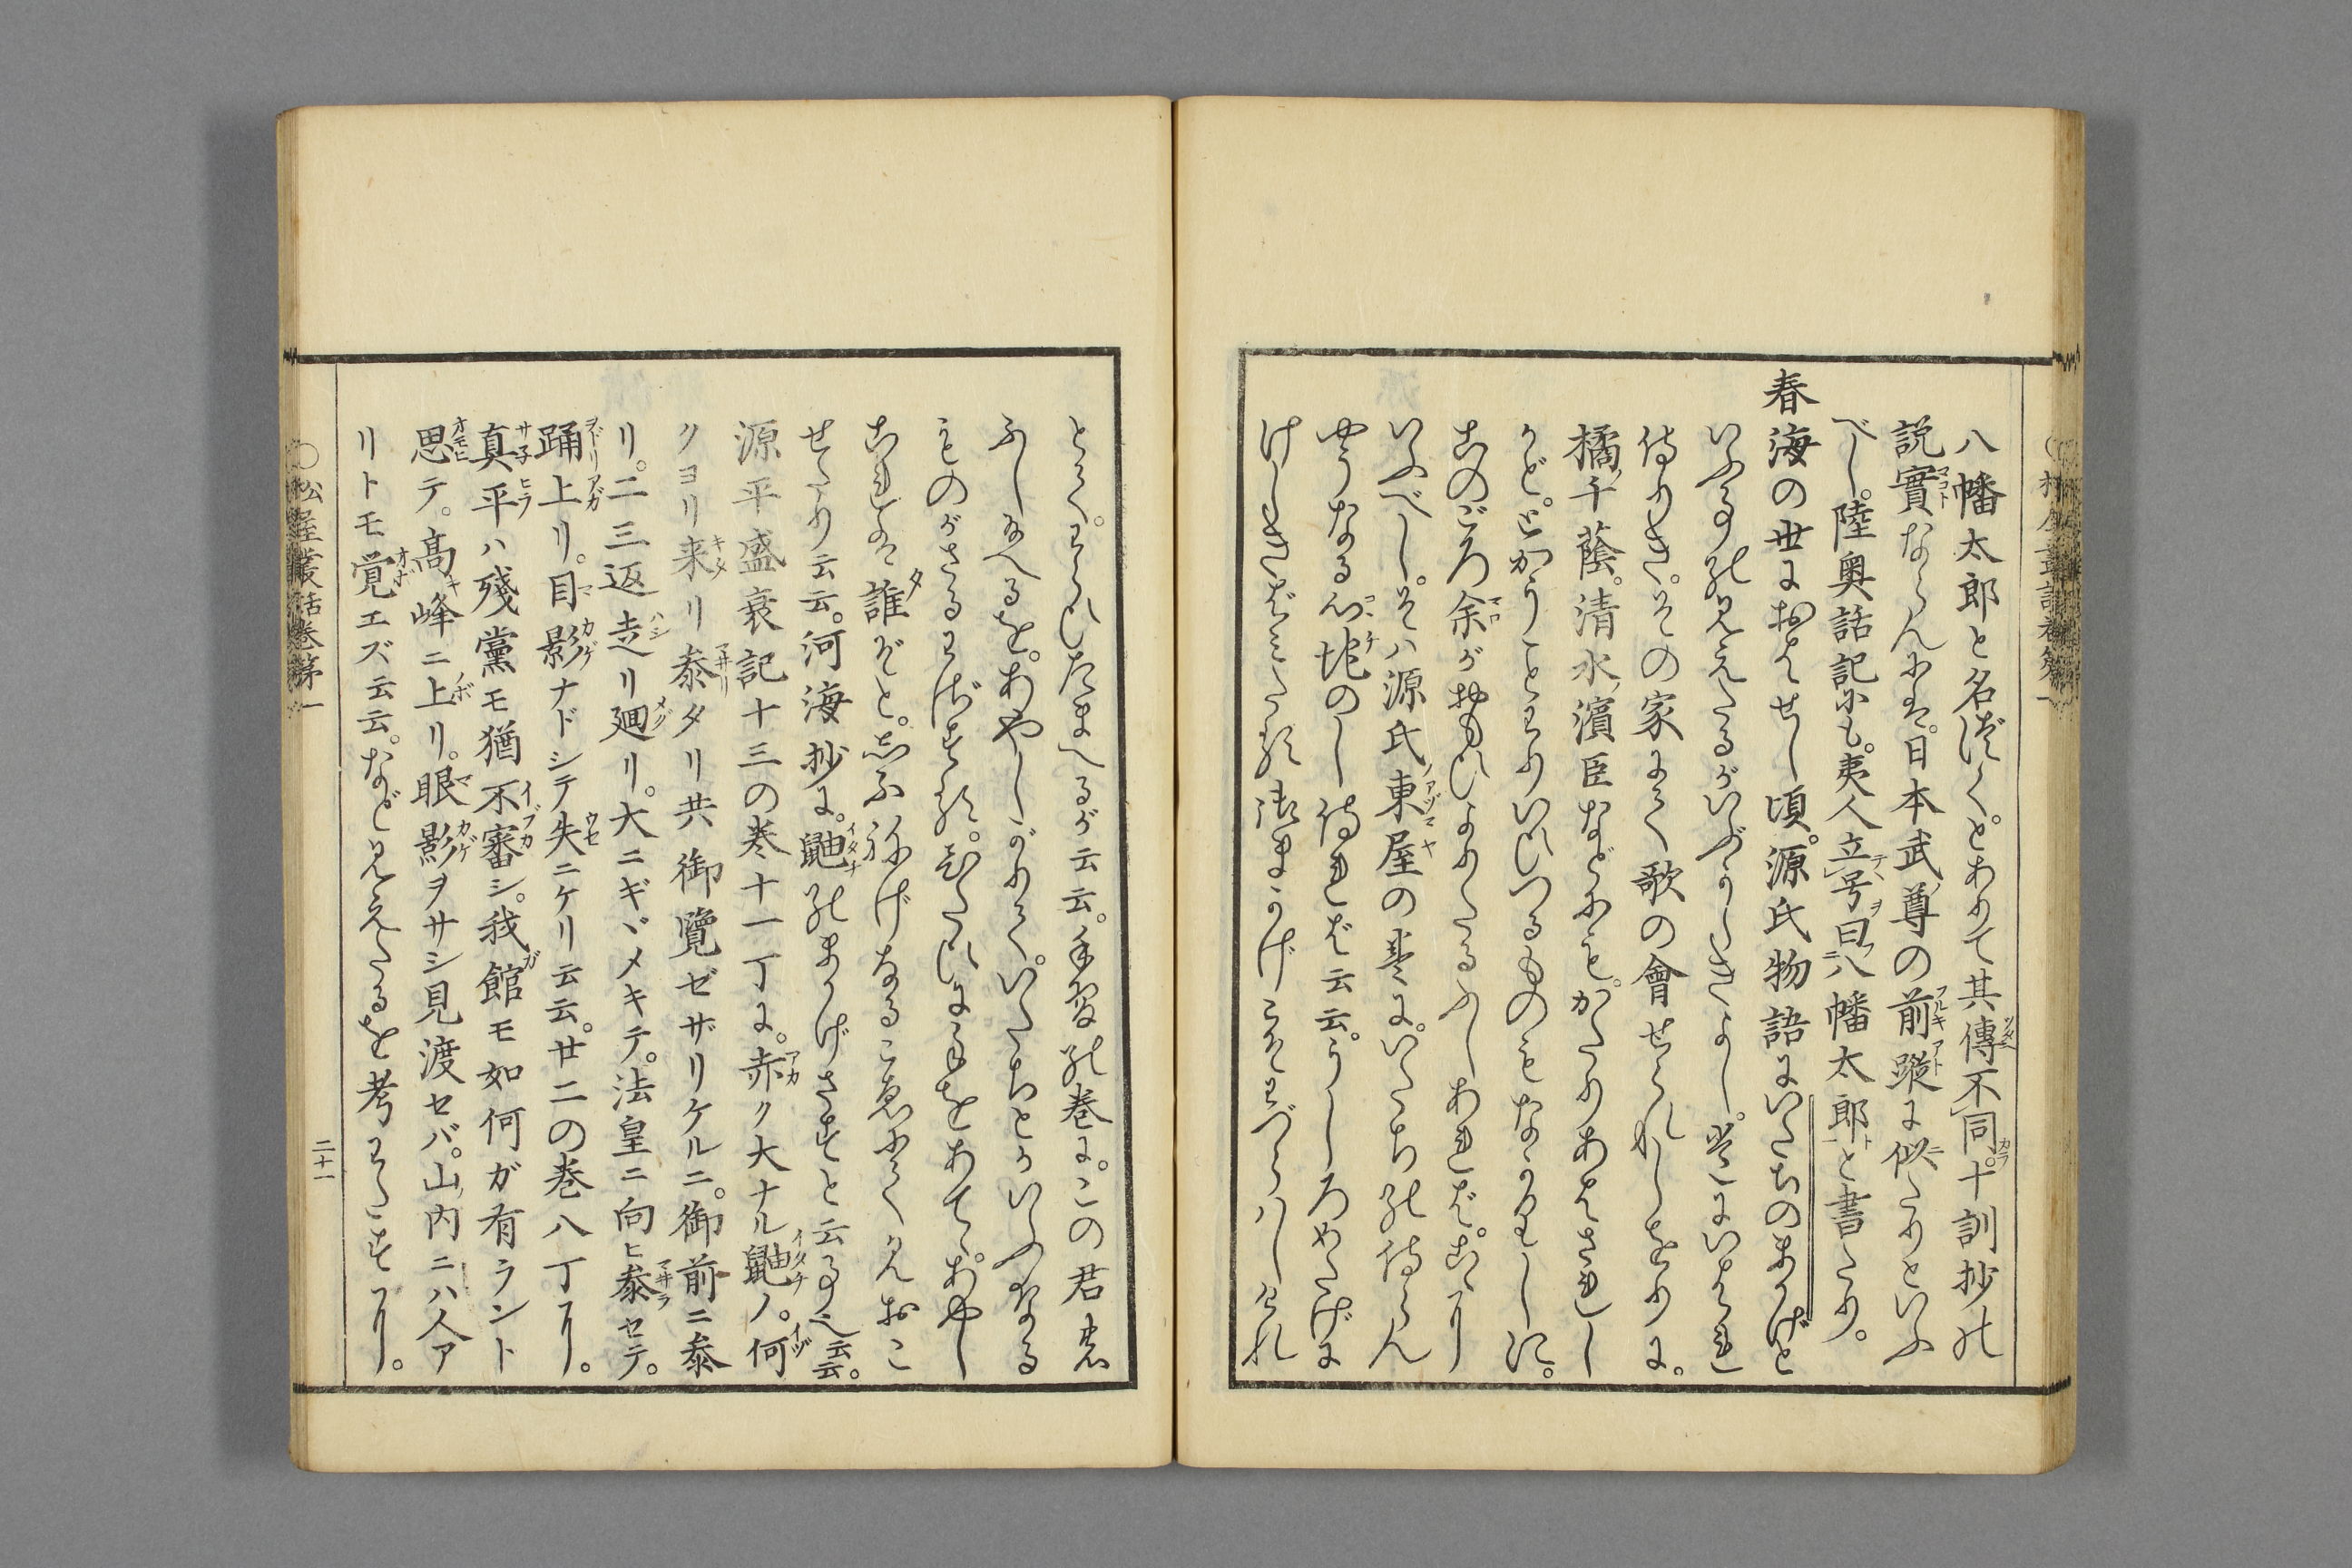 八幡太郎と名づくとありて其傳不同十訓抄の
説實ならんには。日本武尊の前蹤に似たりといふ
べし。陸奥話記にも。夷人立号曰八幡太郎と書たり。
春海の世におはせし頃。源氏物語にいたちのまかげと
いふ事の見えたるがいぶかしきよし。
侍りき。その家にて歌の會せられしをりに。
橘千蔭。清水濱臣などにも。かたりあはされし
かど。とかうことわりいひつるものもなかりしに。
このごろ余がおもひよりたるふしあれば。こゝに
いふべし。そは源氏東屋の巻に。いたちの侍らん
やうなる心地のし侍れば云云。うしろやすげに
けしきばみたる御まかげこそわづらはしけれ
とて。わらひたまへるが云云。手習の巻に。この君の
ふし給へるを。あやしがりて。いたちとかいふなる
ものがさるわざする。ひたひに手をあてゝ。あやし
これは誰ぞと。しふねげなるこゑにて見おこ
せたり云云。河海抄に。鼬のまかげさすと云事也云云。
源平盛衰記十三の巻十一丁に。赤ク大ナル鼬ノ。何
クヨリ来リ泰タリ共御覽ゼザリケルニ。御前ニ泰
リ。二三返走リ廻リ。大ニギヾメキテ。法皇ニ向ヒ泰セテ。
踊上リ。目影ナドシテ失ニケリ云云。廿二の巻八丁に。
真平ハ殘黨モ猶不審シ。我館モ如何ガ有ラント
思テ。高峰ニ上リ。眼影ヲサシ見渡セバ。山内ニハ人ア
リトモ覚エズ云云。など見えたるを考わたすに。
○松屋叢話巻第一
二十一